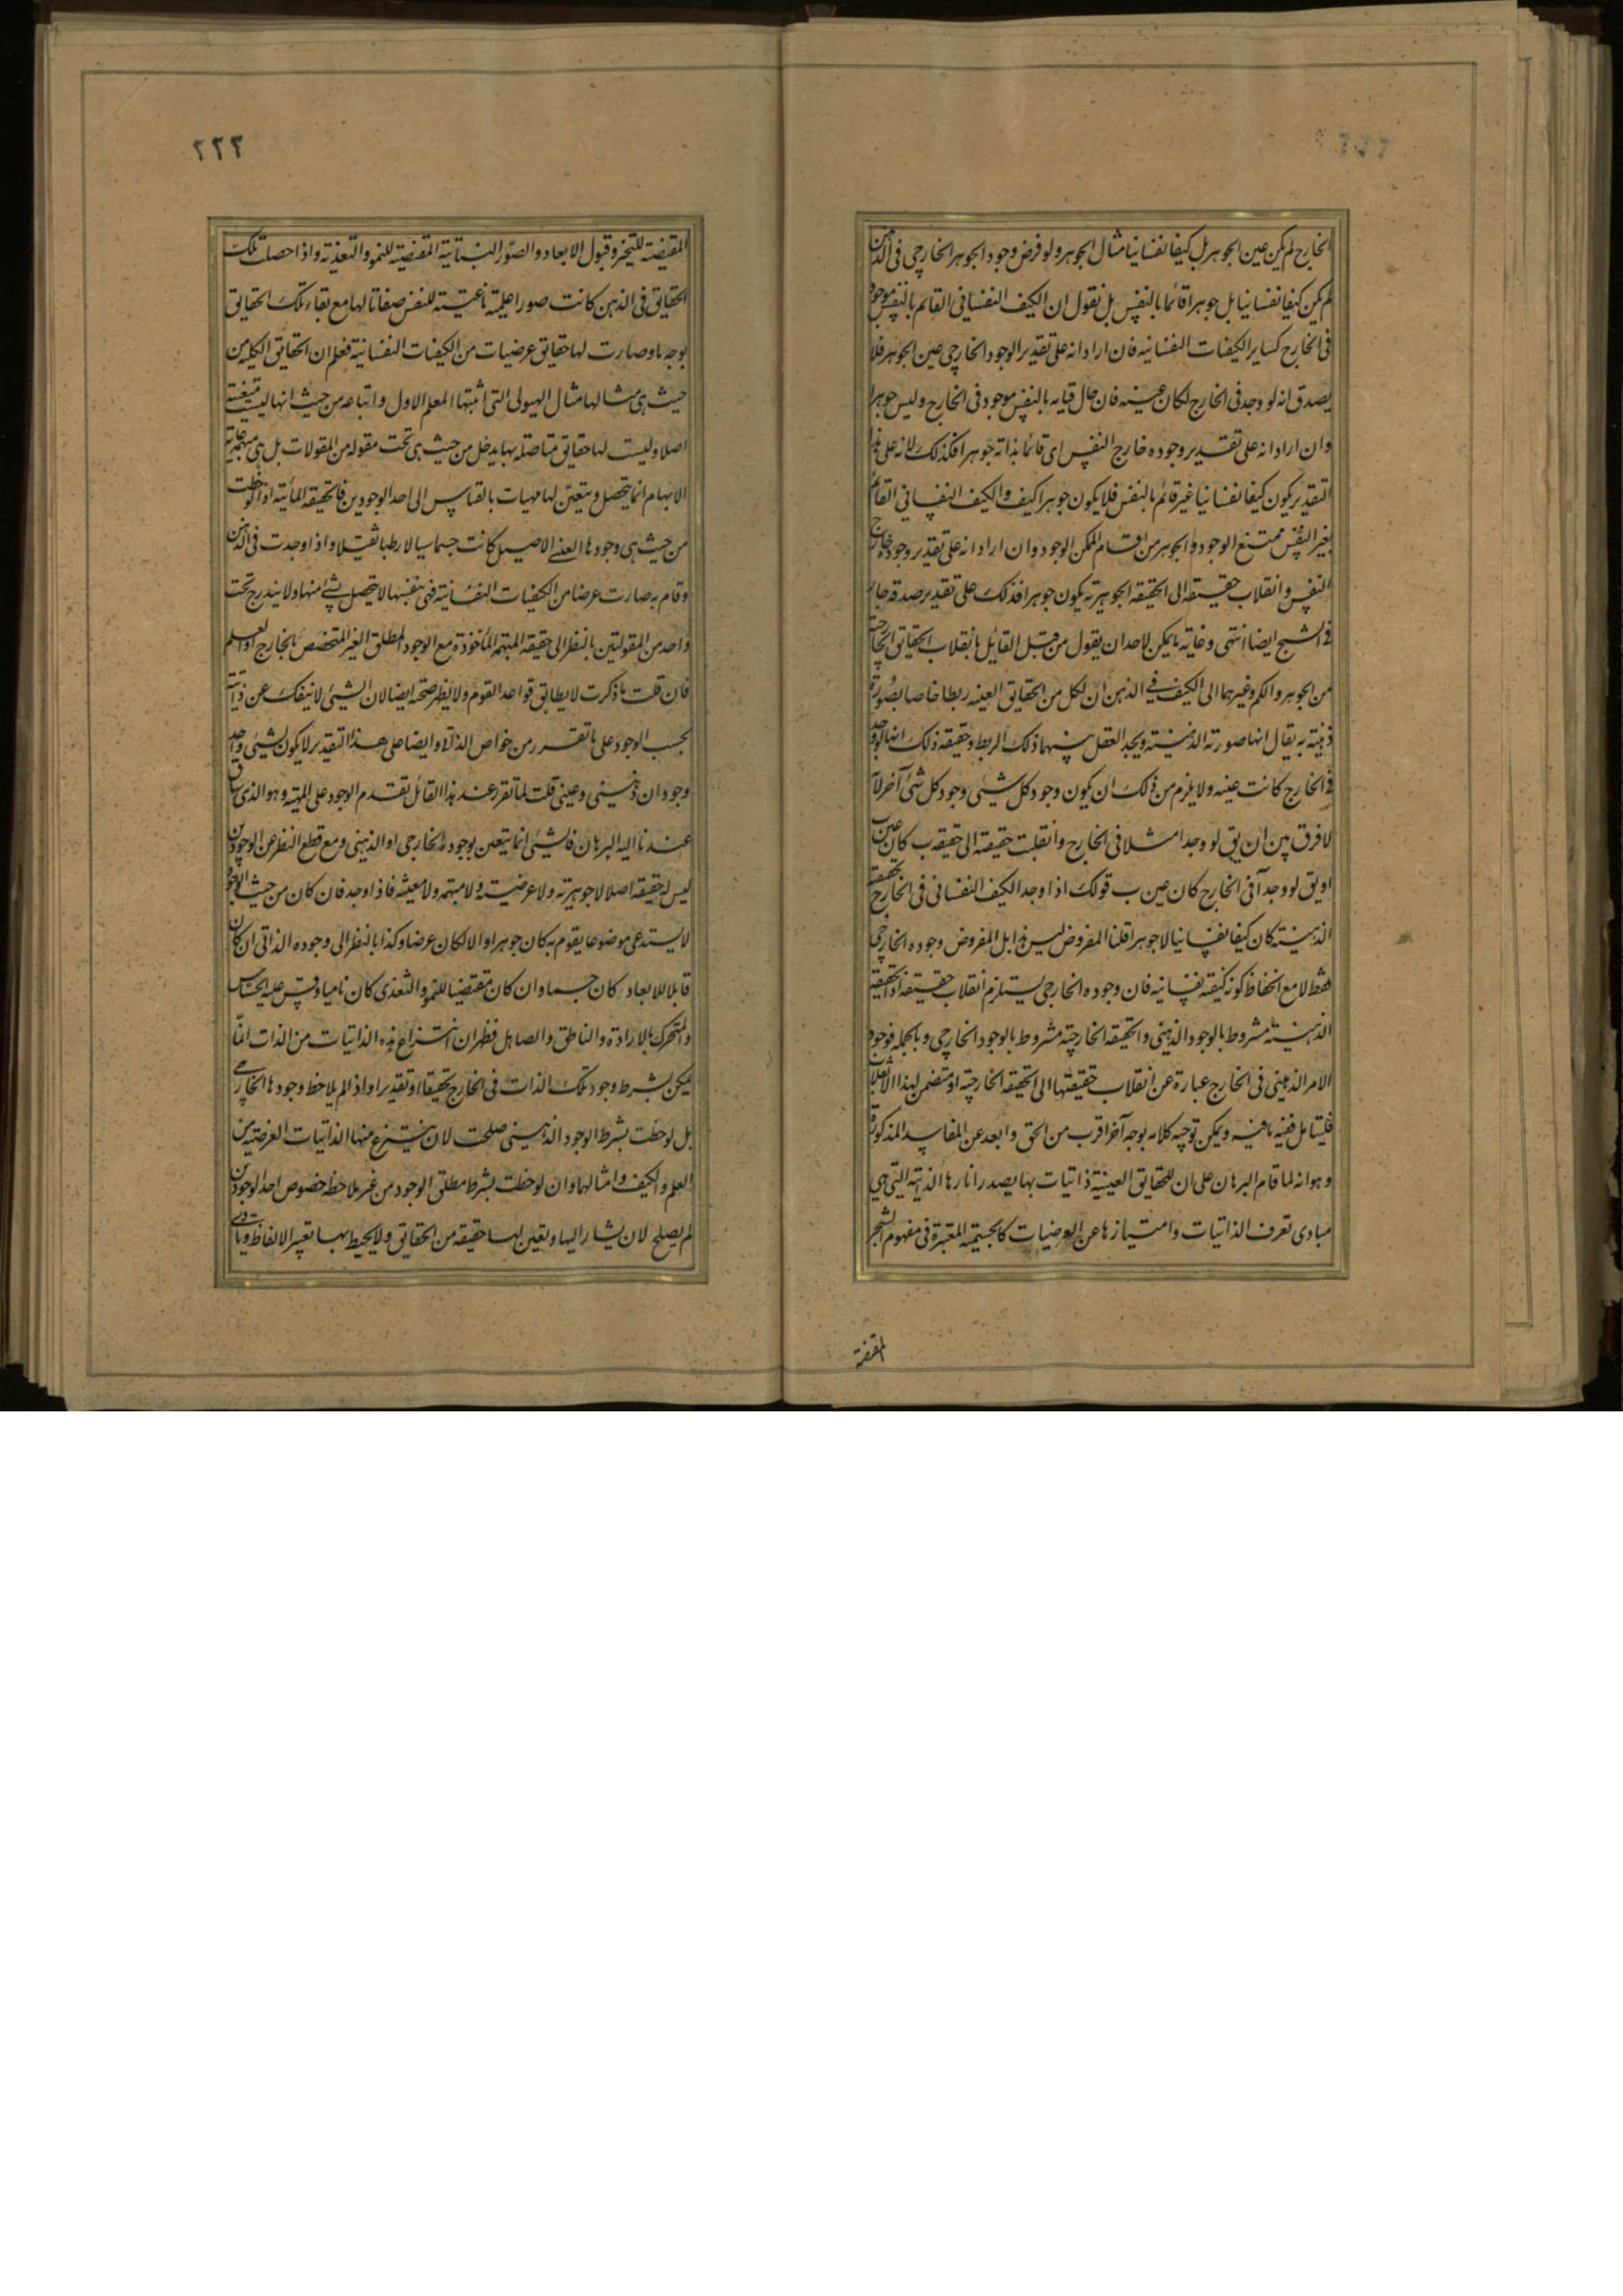 الخارج لم يكن عين الجوهر بل كيفا نفسانيا مثال الجوهر ولو فرض وجود الجوهر الخارجى فى الذهن
لم يكن كيفا نفسانيا بل جوهرا قائما بالنفس بل نقول ان الكيف النفسانى القائم بالنفس موجود
فى الخارج كساير الكيفيات النفسانيه فان اراد انه على تقدير الوجود الخارجى عين الجوهر فلا
يصدق انه لو وجد فى الخارج لكان عينه فان حال قيامه بالنفس موجود فى الخارج وليس جوهرا
وان اراد انه على تقدير وجوده خارج النفس اى قائما بذاته جوهر افكذلك لانه على هذا
التقدير يكون كيفا نفسانيا غير قائم بالنفس فلا يكون جوهرا كيف والكيف النفسانى القائم
بغير النفس ممتنع الوجود والجوهر من اقسام الممكن الوجود وان اراد انه على تقدير وجوده خارج
النفس وانقلاب حقيقته الى الحقيقه الجوهريه يكون جوهرا فذلك على تقدير صدقه جار
فى الشبح ايضا انتهى وغاية ما يمكن لاحد ان يقول من قبل القايل بانقلاب الحقايق الخارجية
من الجوهر والكم وغيرهما الى الكيف فى الذهن ان لكل من الحقايق العينه ربطا خاصا بصورة
ذهنية به يقال انها صورته الذهنية ويجد العقل بينهما ذلك الربط وحقيقه ذلك انها لو وجد
فى الخارج كانت عينه ولا يلزم من ذلك ان يكون وجود كل شيئى وجود كل شئ آخر لا
لا فرق بين ان يق لو وجد امثلا فى الخارج وانقلبت حقيقة الى حقيقه ب كان عين ب
او يق لو وجد آ فى الخارج كان عين ب قولك اذا وجد الكيف النفسانى فى الخارج بحقيقته
الذهنية كان كيفا نفسانيا لا جوهرا قلنا المفروض ليس هذا بل المفروض وجوده الخارجى
فقط لا مع انحفاظ كونه كيفية نفسانيه فان وجوده الخارجى يستلزم انقلاب حقيقته اذ الحقيقة
الذهنية مشروط بالوجود الذهنى والحقيقه الخارجية مشروط بالوجود الخارجى وبالجمله فوجود
الامر الذهنى فى الخارج عبارة عن انقلاب حقيقتها الى الحقيقه الخارجية او متضمن لهذا الانقلاب
فليتامل ففيه ما فيه ويمكن توجيه كلامه بوجه آخر اقرب من الحق وابعد عن المفاسد المذكورة
وهو انه لما قام البرهان على ان للحقايق العينية ذاتيات بها يصدر اثارها الذاتية التى هى
مبادى تعرف الذاتيات وامتيازها عن العرضيات كالجسميه المعتبرة فى مفهوم الشجر
المقتضية للتحيز وقبول الابعاد والصور النباتية المقتضية للنمو والتغذية واذا حصلت تلك
الحقايق فى الذهن كانت صورا علمية ناعتية للنفس صفاتا لها مع بقاء تلك الحقايق
بوجه ما وصارت لها حقايق عرضيات من الكيفيات النفسانية فعلم ان الحقايق الكليه من
حيث هى مثالها مثال الهيولى التى اثبتها المعلم الاول واتباعه من حيث انها ليست متعينة
اصلا وليست لها حقايق متاصلة بها يدخل من حيث هى تحت مقوله من المقولات بل هى
الابهام انما يتحصل ويتعين لها مهيات بالقياس الى احد الوجودين فالحقيقه المائية اذا لوحظت
من حيث هى وجودها العينى الاصيل كانت جسما سيالا رطبا ثقيلا واذا وجدت فى الذهن
وقام به صارت عرضا من الكيفيات النفسانية فهى بنفسها لا يتحصل بشئ منها ولا يندرج تحت
واحد من المقولتين بالنظر الى حقيقه المبهمه المأخوذة مع الوجود المطلق الغير المتخصص بالخارج او العلم
فان قلت ما ذكرت لا يطابق قواعد القوم ولا يظهر صحته ايضا لان الشيئى لا ينفك عن ذاتيته
بحسب الوجود على ما تقرر من خواص الذاتى وايضا على هذا التقدير لا يكون لشيئى واحد
وجودان ذهنى وعينى قلت لما تقرر عند هذا القائل تقدم الوجود على المهيه وهو الذى ساق
عندنا اليه البرهان فالشيئى انما يتعين بوجوده الخارجى او الذهنى ومع قطع النظر عن الوجودين
ليس له حقيقه اصلا لا جوهرية ولا عرضية ولا مبهمه ولا معينه فاذا وجد فان كان من حيث الوجود
لا يستدعى موضوعا يقوم به كان جوهرا والا لكان عرضا وكذا بالنظر الى وجوده الذاتى ان كان
قابلا للابعاد كان جسما وان كان مقتضيا للنمو والتغذى كان ناميا وقس عليه الحساس
والمتحرك بالارادة والناطق والصاهل فظهر ان انتزاع هذه الذاتيات من الذات انما
يمكن بشرط وجود تلك الذات فى الخارج تحقيقا او تقديرا واذا لم يلاحظ وجودها الخارجى
بل لوحظت بشرط الوجود الذهنى صلحت لان ينتزع منها الذاتيات العرضية من
العلم والكيف وامثالها وان لوحظت بشرط مطلق الوجود من غير ملاحظه خصوص احد الوجودين
لم يصلح لان يشار اليها ويعين لها حقيقه من الحقايق ولا يحيط بها تعبير الالفاظ